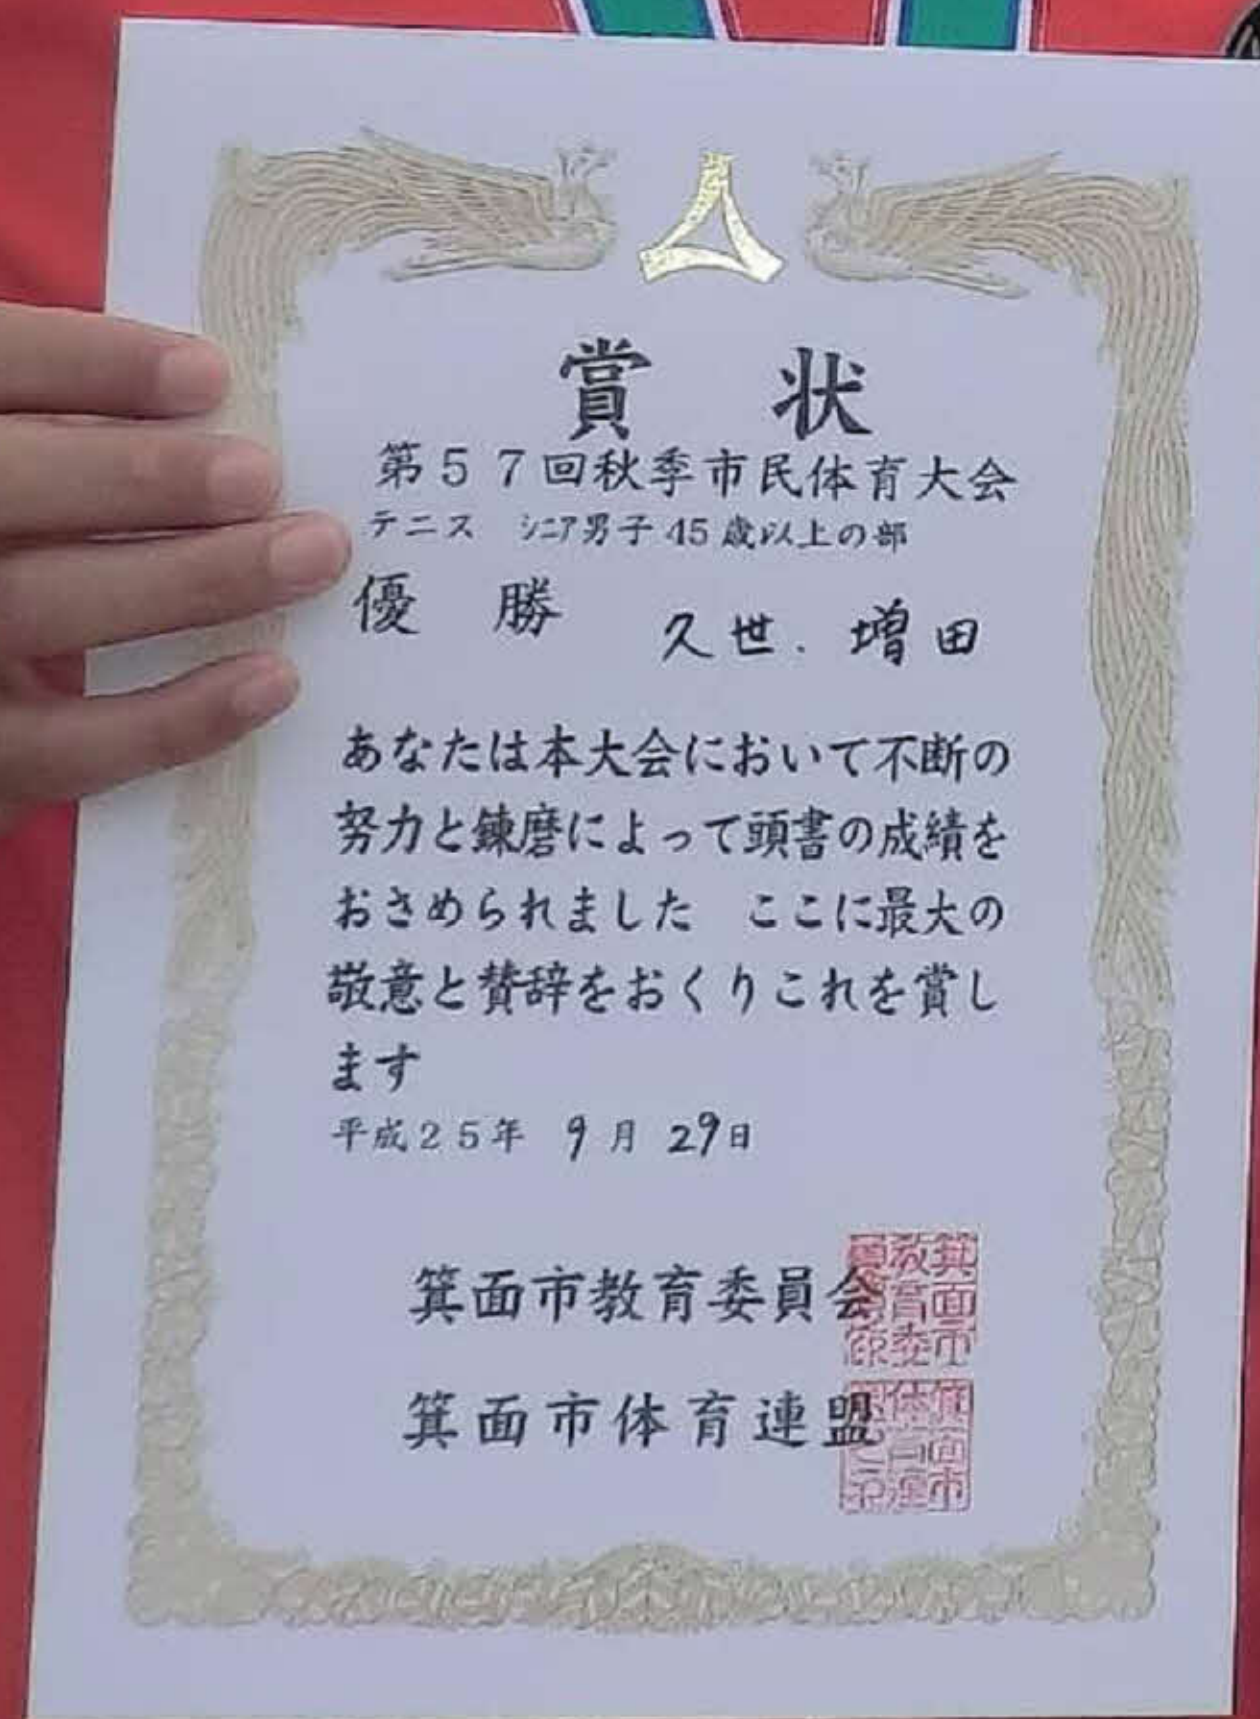 賞状
第57回秋季市民体育大会
テニス シニア男子45歳以上の部
優勝 久世.増田
あなたは本大会において不断の
努力と錬磨によって頭書の成績を
おさめられました ここに最大の
敬意と賛辞をおくりこれを賞し
ます
平成25年 9月 29日
箕面市教育委員会
箕面市体育連盟